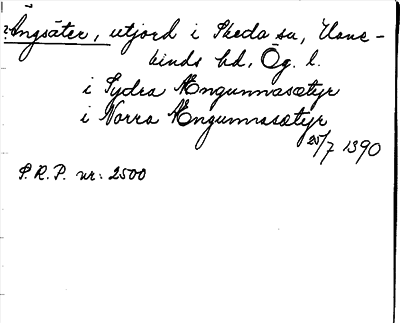 ?Ängsäter, utjord i Skeda sn, Hane-
kinds hd, Ög. l.
i Sydra Ængunnasætyr
i Norra Ængunnasætyr
25/7 1390
S.R.P. nr: 2500